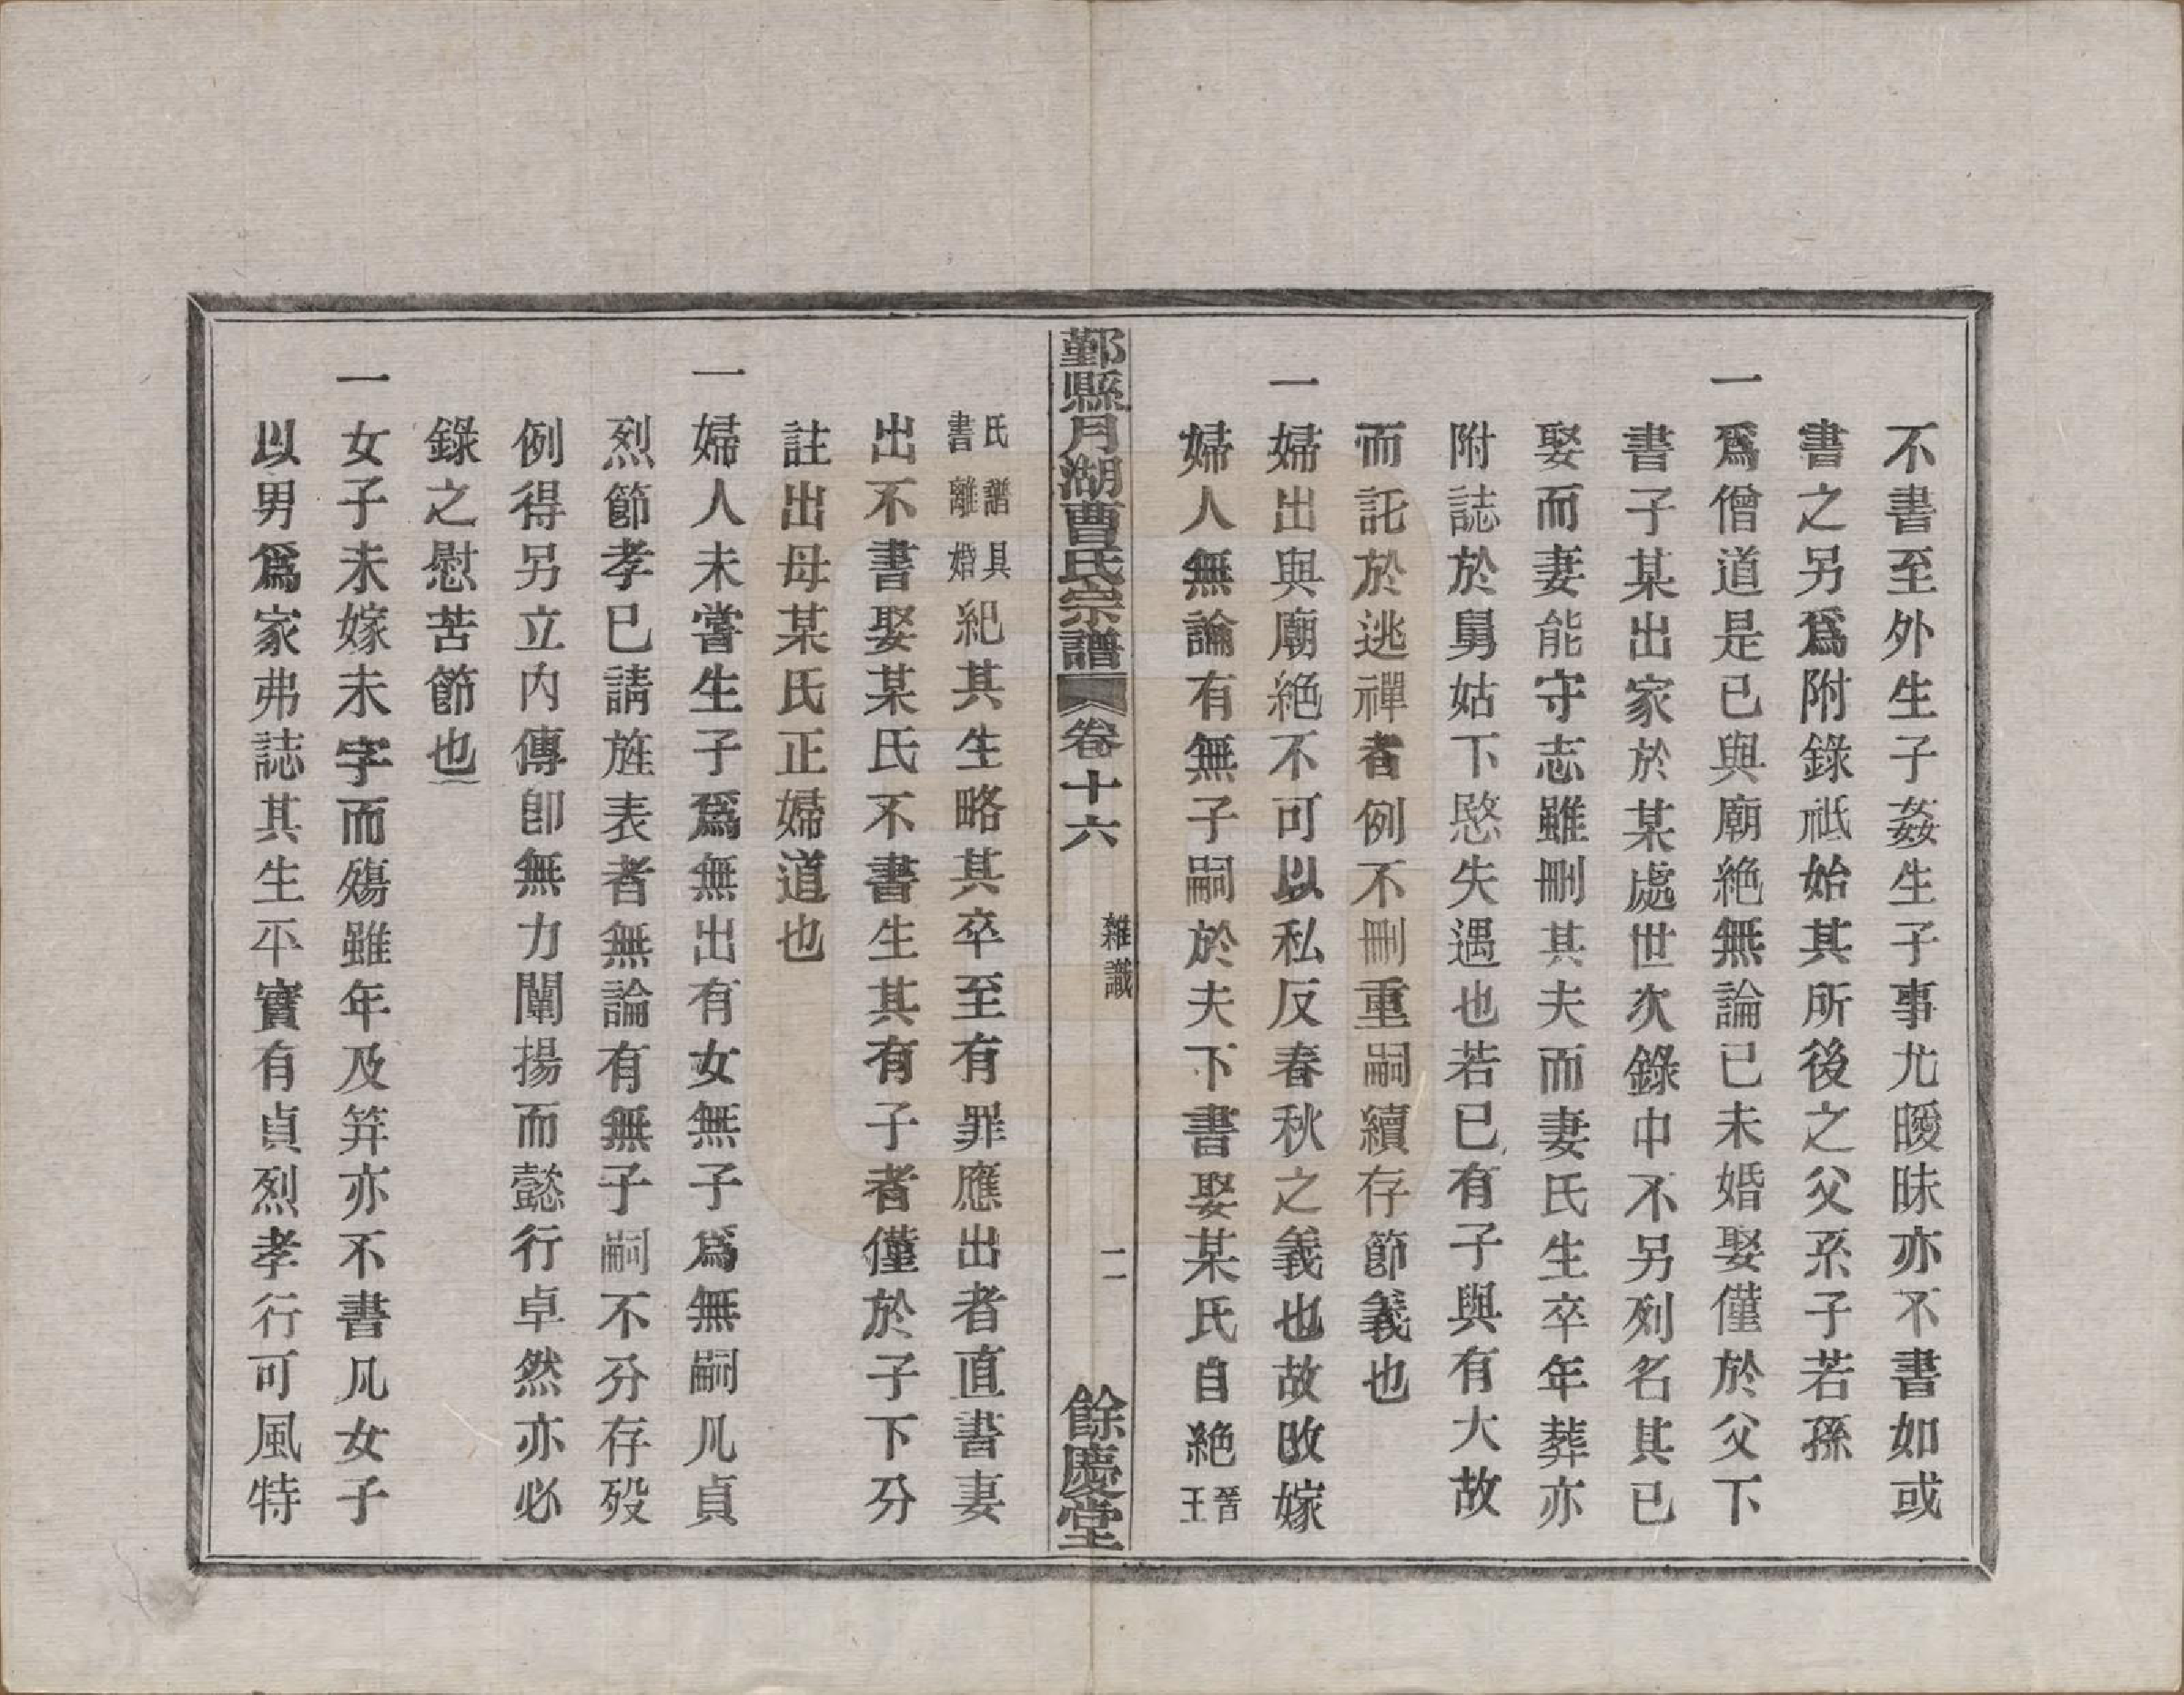 不書至外生子姦生子事尤曖昧亦不書如或
書之另爲附錄祗始其所後之父系子若孫
一爲僧道是已與廟絶無論已未婚娶僅於父下
書子某出家於某處世次錄中不另列名其已
娶而妻能守志雖刪其夫而妻氏生卒年葬亦
附誌於舅姑下愍失遇也若已有子與有大故
而託於逃禪者例不刪重嗣續存節義也
一婦出與廟絶不可以私反春秋之義也故改嫁
婦人無論有無子嗣於夫下書娶某氏自絶晉王
鄞縣月湖曹氏宗譜 卷十六 雜識 二 餘慶堂
氏譜具書離婚紀其生略其卒至有罪應出者直書妻
出不書娶某氏不書生其有子者僅於子下分
註出母某氏正婦道也
一婦人未嘗生子爲無出有女無子爲無嗣凡貞
烈節孝已請旌表者無論有無子嗣不分存歿
例得另立内傳卽無力闡揚而懿行卓然亦必
錄之慰苦節也
一女子未嫁未字而殤雖年及笄亦不書凡女子
以男爲家弗誌其生平實有貞烈孝行可風特